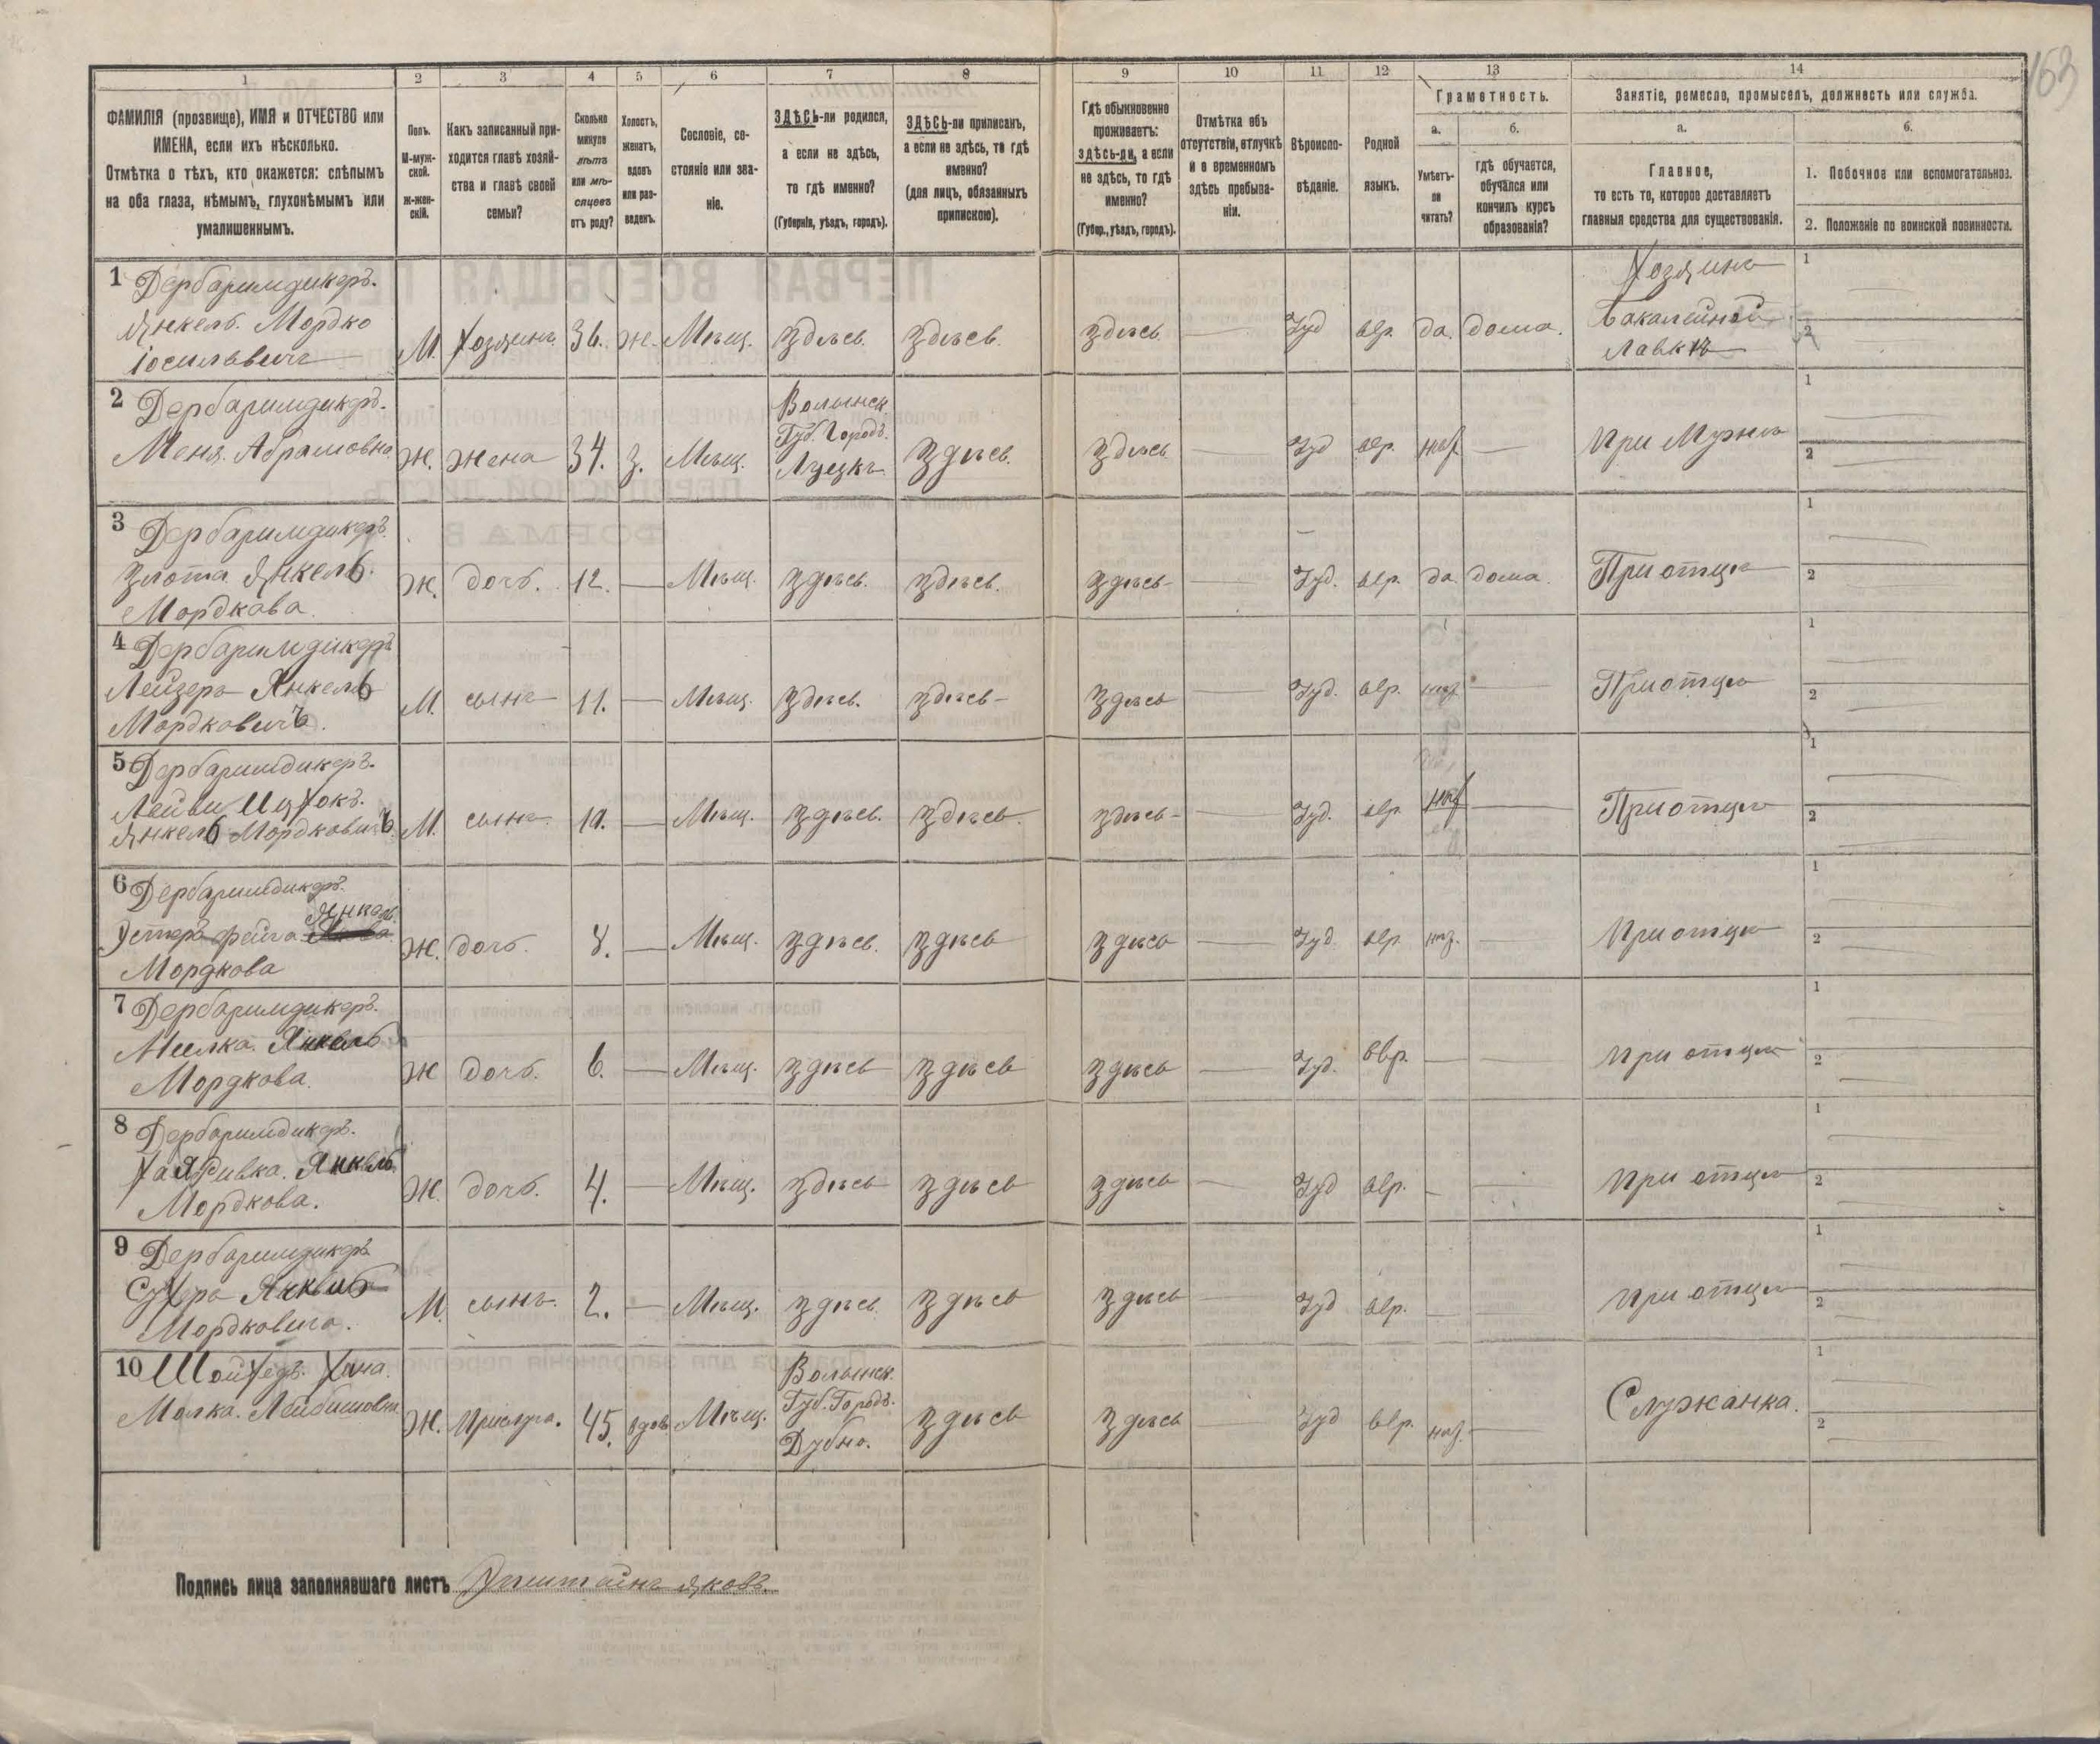 163
1 2 3 4 5 6 7 8 9 10 11 12 13 14
ФАМИЛІЯ (прозвище), ИМЯ и ОТЧЕСТВО или
ИМЕНА, если ихъ нѣсколько.
Отмѣтка о тѣхъ, кто окажется: слѣпымъ
на оба глаза, нѣмымъ, глухонѣмымъ или
умалишеннымъ.
Полъ.
М-муж-
ской.
Ж-жен-
скій.
Какъ записанный при-
ходится главѣ хозяй-
ства и главѣ своей
семьи?
Сколько
минуло
лѣтъ
или мѣ-
сяцевъ
отъ роду?
Холостъ,
женатъ,
вдовъ
или раз-
веденъ.
Сословіе, со-
стояніе или зва-
ніе.
ЗДѢСЬ-ли родился,
а если не здѣсь,
то гдѣ именно?
(Губернія, уѣздъ, городъ).
ЗДѢСЬ-ли приписанъ,
а если не здѣсь, то гдѣ
именно?
(для лицъ, обязанныхъ
припискою).
Гдѣ обыкновенно
проживаетъ:
здѣсь-ли, а если
не здѣсь, то гдѣ
именно?
(Губер., уѣздъ, городъ).
Отмѣтка объ
отсутствіи, отлучкѣ
и о временномъ
здѣсь пребыва-
ніи.
Вѣроиспо-
вѣданіе.
Родной
языкъ.
Грамотность.
а.
Умѣетъ-
ли
читать?
б.
гдѣ обучается,
обучался или
кончилъ курсъ
образованія?
Занятіе, ремесло, промыселъ, должность или служба.
а.
Главное,
то есть то, которое доставляетъ
главныя средства для существованія.
б.
1. Побочное или вспомогательное.
2. Положеніе по воинской повинности.
1 Дербаримдикеръ.
Янкель. Мордко
Іосильвичъ
М. Хозяинъ 36. ж. Мѣщ. Здѣсь. Здѣсь. Здѣсь Іуд евр. да. дома.
Хозяинъ
Бакалейной
Лавкѣ
1
2
2 Дербаримдикеръ.
Меня. Абрамовна
Ж. жена 34. З. Мѣщ.
Волынск.
Губ. Городъ.
Луцкъ
Здѣсь. Здѣсь Іуд евр. нѣт При Мужѣ
1
2
3 Дербаримдикеръ.
Злота Янкель.
Мордкова.
Ж. дочь. 12. Мѣщ. Здѣсь. Здѣсь. Здѣсь Іуд. евр. да. дома. При отцѣ
1
2
4 Дербаримдикеръ
Лейзеръ Янкель
Мордковичъ.
М. сынъ 11. Мѣщ. Здѣсь. Здѣсь Здѣсь Іуд. евр. При отцѣ
1
2
5 Дербаримдикеръ.
Янкель Мордковичъ.
М. сынъ 10. Мѣщ. Здѣсь. Здѣсь. Здѣсь Іуд. евр. При отцѣ
1
2
6 Дербаримдикеръ.
Янкель.
Эстеръ фейга
Мордкова
Ж. дочь. 8. Мѣщ. Здѣсь. Здѣсь Здѣсь Іуд. евр. При отцѣ
1
2
7 Дербаримдикеръ.
Янкель
Мордкова.
Ж дочь. 6. Мѣщ. Здѣсь Здѣсь Здѣсь Іуд. евр. При отцѣ
1
2
8 Дербаримдикеръ.
Хая Ривка. Янкель
Мордкова.
Ж. дочь. 4. Мѣщ. Здѣсь Здѣсь Здѣсь Іуд евр. При отцѣ
1
2
9 Дербаримдикеръ
Сухеръ Янкель
Мордковичъ.
М. сынъ. 2. Мѣщ. Здѣсь. Здѣсь Здѣсь Іуд евр. При отцѣ
1
2
10 Шойхедъ. Хана.
Малка. Лейбишовна
Ж. Прислуга. 45. вдов Мѣщ.
Волынск.
Губ. Городъ.
Дубно.
Здѣсь Здѣсь Іуд евр. Служанка.
1
2
Подпись лица заполнявшаго листъ Эпштейнъ Яковъ.